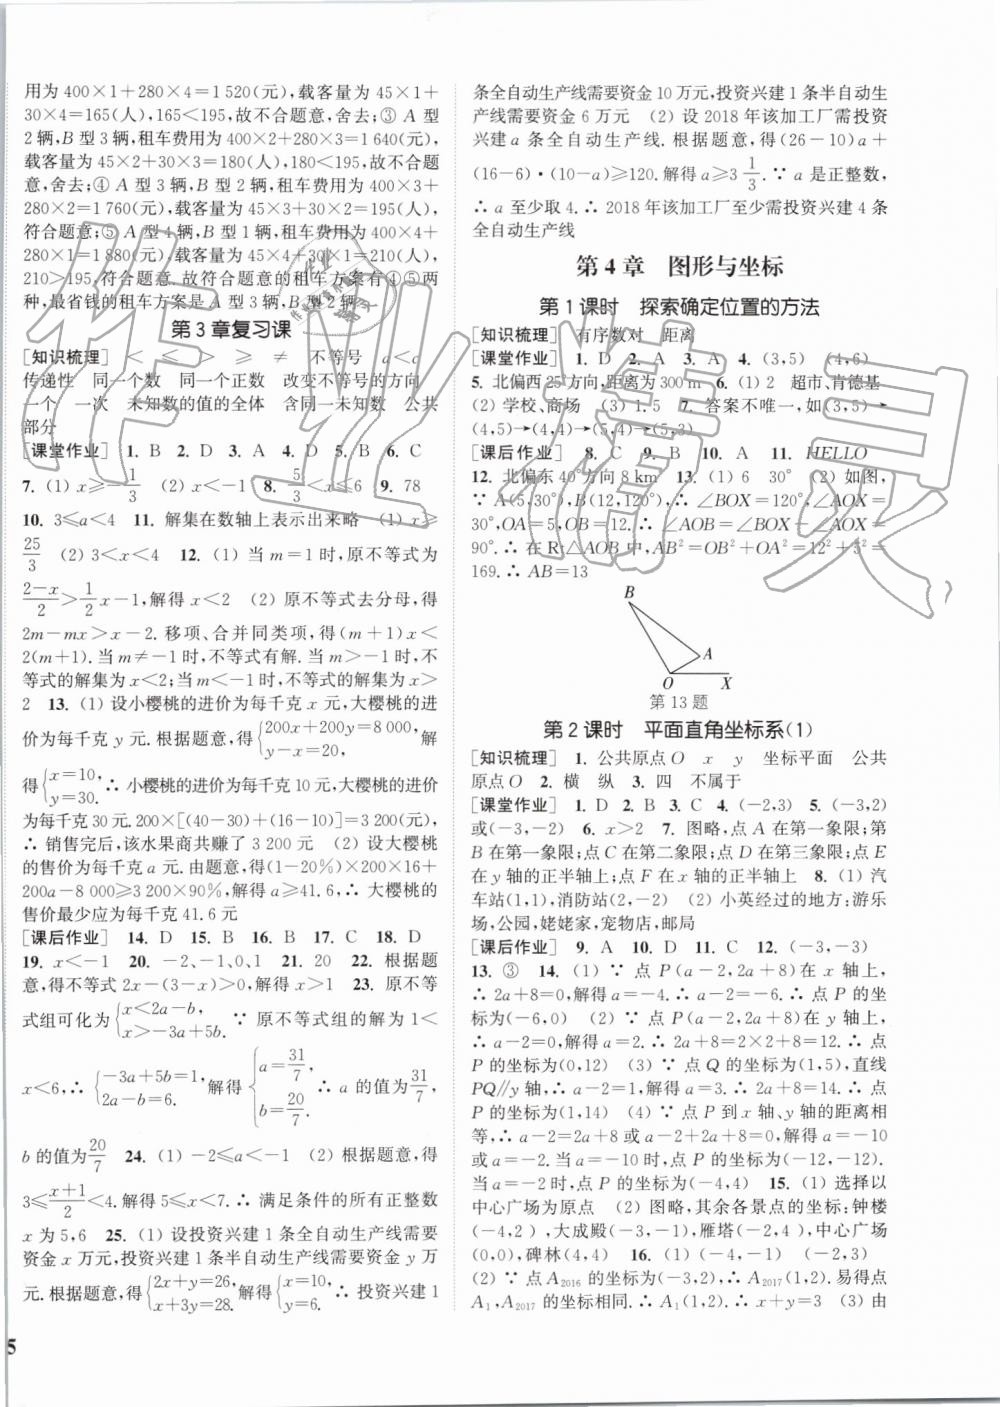 用为 400×1+280×4=1 520(元),载客量为 45×1+
30×4=165(人),165<195,故不合题意,舍去;③ A 型
2 辆,B 型 3 辆,租车费用为 400×2+280×3=1 640(元),
载客量为 45×2+30×3=180(人),180<195,故不合题
意,舍去;④ A 型 3 辆,B 型 2 辆,租车费用为 400×3+
280×2=1 760(元),载客量为 45×3+30×2=195(人),
符合题意;⑤ A 型 4 辆,B 型 1 辆,租车费用为 400×4+
280×1=1 880(元),载客量为 45×4+30×1=210(人),
210>195,符合题意. 故符合题意的租车方案有④⑤两
种,最省钱的租车方案是 A 型 3 辆,B 型 2 辆
第 3 章复习课
[知识梳理] < ≤ > ≥ ≠ 不等号 a<a
传递性 同一个数 同一个正数 改变不等号的方向
一个 一次 未知数的值的全体 含同一未知数 公共
部分
[课堂作业] 1. B 2. D 3. A 4. D 5. B 6. C
7. (1) x≥-1/3 (2) x<-1 8. 5/3<x≤6 9. 78
10. 3≤a<4 11. 解集在数轴上表示出来略 (1) x≥
25/3 (2) 3<x<4 12. (1) 当 m=1 时,原不等式为
(2-x)/2>1/2x-1,解得 x<2 (2) 原不等式去分母,得
2m-mx>x-2. 移项、合并同类项,得(m+1)x<
2(m+1). 当 m≠-1 时,不等式有解. 当 m>-1 时,不
等式的解集为 x<2;当 m<-1 时,不等式的解集为 x>
2 13. (1) 设小樱桃的进价为每千克 x 元,大樱桃的进
价为每千克 y 元. 根据题意,得{200x+200y=8 000, y-x=20. 解
得{x=10, y=30. ∴ 小樱桃的进价为每千克 10 元,大樱桃的进价为
每千克 30 元. 200×[(40-30)+(16-10)]=3 200(元),
∴ 销售完后,该水果商共赚了 3 200 元 (2) 设大樱桃
的售价为每千克 a 元. 由题意,得(1-20%)×200×16+
200a-8 000≥3 200×90%,解得 a≥41.6,∴ 大樱桃的
售价最少应为每千克 41.6 元
[课后作业] 14. D 15. B 16. B 17. C 18. D
19. x<-1 20. -2、-1、0、1 21. 20 22. 根据题
意,得不等式 2x-(3-x)>0,解得 x>1 23. 原不等
式组可化为{x<2a-b, x>-3a+5b. ∵ 原不等式组的解为 1<
x<6,∴ {-3a+5b=1, 2a-b=6. 解得{a=31/7, b=20/7. ∴ a 的值为31/7,
b 的值为20/7 24. (1) -2≤a<-1 (2) 根据题意,得
3≤(x+1)/2<4. 解得 5≤x<7. ∴ 满足条件的所有正整数
x 为 5,6 25. (1) 设投资兴建 1 条全自动生产线需要
资金 x 万元,投资兴建 1 条半自动生产线需要资金 y 万
元. 根据题意,得{2x+y=26, x+3y=28. 解得{x=10, y=6. ∴ 投资兴建 1
5
条全自动生产线需要资金 10 万元,投资兴建 1 条半自动生
产线需要资金 6 万元 (2) 设 2018 年该加工厂需投资
兴建 a 条全自动生产线. 根据题意,得(26-10)a+
(16-6)·(10-a)≥120. 解得 a≥3 1/3. ∵ a 是正整数,
∴ a 至少取 4. ∴ 2018 年该加工厂至少需投资兴建 4 条
全自动生产线
第 4 章 图形与坐标
第 1 课时 探索确定位置的方法
[知识梳理] 有序数对 距离
[课堂作业] 1. D 2. A 3. A 4. (3,5) (4,6)
5. 北偏西 25°方向,距离为 300 m 6. (1) 2 超市、肯德基
(2) 学校、商场 (3) 1,5 7. 答案不唯一,如(3,5)→
(4,5)→(4,4)→(5,4)→(5,3)
[课后作业] 8. C 9. B 10. A 11. HELLO
12. 北偏东 40°方向 8 km 13. (1) 6 30° (2) 如图,
∵ A(5,30°),B(12,120°),∴ ∠BOX=120°,∠AOX=
30°,OA=5,OB=12. ∴ ∠AOB=∠BOX-∠AOX=
90°. ∴ 在 Rt△AOB 中,AB²=OB²+OA²=12²+5²=
169. ∴ AB=13
B
A
O X
第 13 题
第 2 课时 平面直角坐标系(1)
[知识梳理] 1. 公共原点 O x y 坐标平面 公共
原点 O 2. 横 纵 3. 四 不属于
[课堂作业] 1. D 2. B 3. C 4. (-2,3) 5. (-3,2)
或(-3,-2) 6. x>2 7. 图略,点 A 在第一象限;第
B 在第一象限;点 C 在第二象限;点 D 在第三象限;点 E
在 y 轴的正半轴上;点 F 在 x 轴的正半轴上 8. (1) 汽
车站(1,1),消防站(2,-2) (2) 小英经过的地方:游乐
场,公园,姥姥家,宠物店,邮局
[课后作业] 9. A 10. D 11. C 12. (-3,-3)
13. ③ 14. (1) ∵ 点 P(a-2,2a+8)在 x 轴上,
∴ 2a+8=0,解得 a=-4. ∴ a-2=-6. ∴ 点 P 的坐
标为(-6,0) (2) ∵ 点 P(a-2,2a+8)在 y 轴上,
∴ a-2=0,解得 a=2. ∴ 2a+8=2×2+8=12. ∴ 点
P 的坐标为(0,12) (3) ∵ 点 Q 的坐标为(1,5),直线
PQ∥y 轴,∴ a-2=1,解得 a=3. ∴ 2a+8=14. ∴ 点
P 的坐标为(1,14) (4) ∵ 点 P 到 x 轴、y 轴的距离相
等,∴ a-2=2a+8 或 a-2+2a+8=0,解得 a=-10
或 a=-2. 当 a=-10 时,点 P 的坐标为(-12,-12).
当 a=-2 时,点 P 的坐标为(-4,4) 15. (1) 选择以
中心广场为原点 (2) 图略,其余各景点的坐标:钟楼
(-4,2),大成殿(-3,-1),雁塔(-2,4),中心广场
(0,0),碑林(4,4) 16. (1) (-4,-1) (-2,3)
(2) ∵ 点 A₂₀₁₆ 的坐标为(-3,2),∴ A₂₀₁₇(1,2). 易得点
A₁,A₂₀₁₇ 的坐标相同. ∴ A₁(1,2). ∴ x+y=3 (3) 由
作业精灵